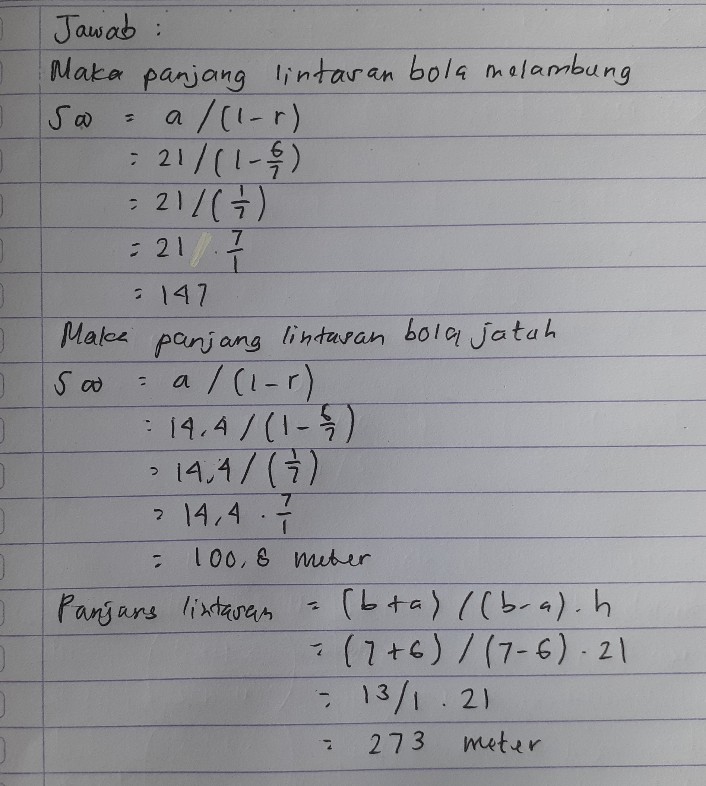 Jawab :
Maka panjang lintasan bola melambung
S∞ = a / (1-r)
= 21 / (1 - 6/7)
= 21 / (1/7)
= 21 . 7/1
= 147
Maka panjang lintasan bola jatuh
S∞ = a / (1-r)
= 14,4 / (1 - 6/7)
= 14,4 / (1/7)
= 14,4 . 7/1
= 100,8 meter
Panjang lintasan = (b+a) / (b-a) . h
= (7+6) / (7-6) . 21
= 13/1 . 21
= 273 meter